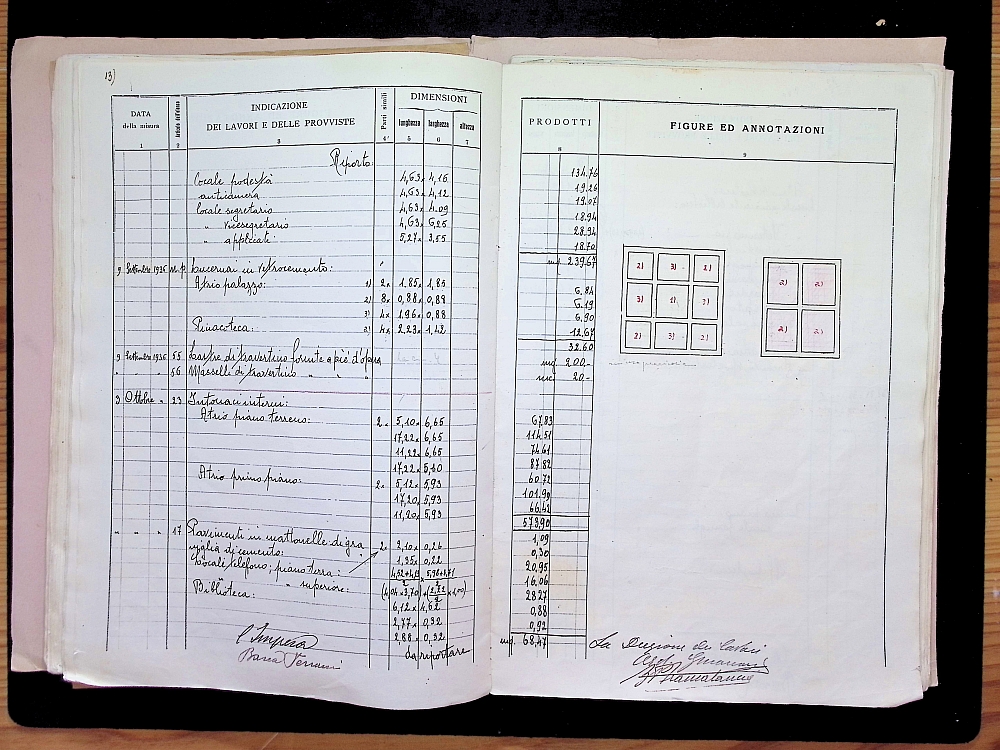 13)
DATA della misura
INDICAZIONE DEI LAVORI E DELLE PROVVISTE
Parti simili
DIMENSIONI
lunghezza larghezza altezza
1 2 3 4 5 6 7
Riporto:
Locale podestà 4,63 x 4,16
anticamera 4,63 x 4,12
Locale segretario 4,63 x 4.09
" vicesegretario 4,63 x 6,25
" applicati 5,27 x 3,55
9 Settembre 1936 Lucernai in vetrocemento:
Atrio palazzo: 1) 2x 1,85 x 1,85
2) 8x 0,88 x 0,88
3) 4x 1.96 x 0,88
Pinacoteca: 2) 4x 2.23 x 1,42
9 Settembre 1936 55 Lastre di travertino fornite a piè d'opera
" " " 56 Masselli di travertino " " "
3 Ottobre " 23 Intonaci interni:
Atrio piano terreno: 2x 5,10 x 6,65
17,22 x 6,65
11,22 x 6,65
17,22 x 5,10
Atrio primo piano: 2x 5,12 x 5,93
17,20 x 5,93
11,20 x 5,93
" " " 17 Pavimenti in mattonelle di gra 2x 2,10 x 0,26
niglia di cemento: 1,35 x 0,22
Locale telefono; piano terra:
" " superiore:
Biblioteca:
6,12 x 4,62
2,77 x 0,32
2,88 x 0,32
L'Impresa
da riportare
PRODOTTI
FIGURE ED ANNOTAZIONI
8 9
134.76
19.26
19.07
18.94
28.94
18.70
mq. 239.67
6.84
6.19
6.90
12.67
32.60
mq. 200.-
mc. 20.-
67,83
114.51
74.61
87.82
60.72
101.99
66.42
573,90
1,09
0,30
20,95
16.06
28.27
0,88
0,92
mq. 68,47
2) 3) 2)
3) 1) 3)
2) 3) 2)
2) 2)
2) 2)
La Direzione dei lavori